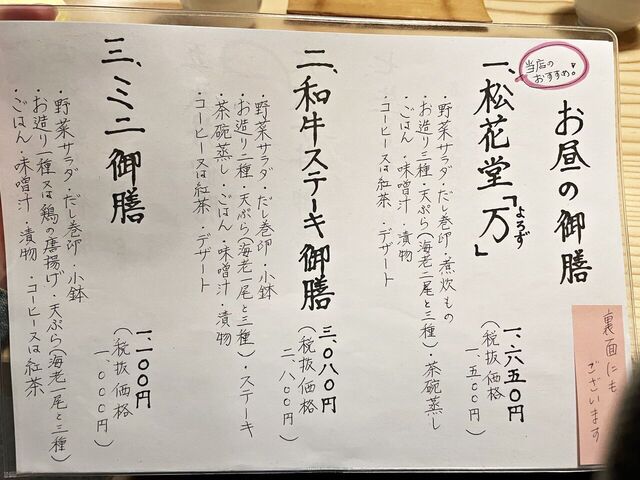 お昼の御膳
裏面にも
ございます
当店の
おすすめ!
一、松花堂「万」
よろず
・野菜サラダ・だし巻卵・煮炊もの
・お造り三種・天ぷら(海老二尾と三種)・茶碗蒸し
・ごはん・味噌汁・漬物
・コーヒー又は紅茶・デザート
一、六五〇円
(税抜価格
一、五〇〇円)
二、和牛ステーキ御膳
・野菜サラダ・だし巻卵・小鉢
・お造り二種・天ぷら(海老一尾と三種)・ステーキ
・茶碗蒸し・ごはん・味噌汁・漬物
・コーヒー又は紅茶・デザート
三、〇八〇円
(税抜価格
二、八〇〇円)
三、ミニ御膳
・野菜サラダ・だし巻卵・小鉢
・お造り一種又は鶏の唐揚げ・天ぷら(海老一尾と三種)
・ごはん・味噌汁・漬物・コーヒー又は紅茶
一、一〇〇円
(税抜価格
一、〇〇〇円)